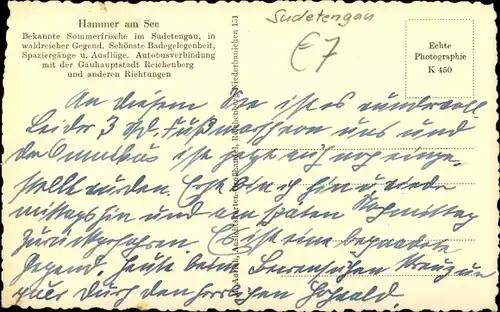 Hammer am See
Bekannte Sommerfrische im Sudetengau, in
waldreicher Gegend. Schönste Badegelegenheit,
Spaziergänge u. Ausflüge. Autobusverbindung
mit der Gauhauptstadt Reichenberg
und anderen Richtungen
Sudetengau
E7
Echte
Photographie
K 450
An diesem See ist es wundervoll
Leider 3 Std. Fußmarsch von uns und
der Omnibus ist jetzt auch noch einge-
stellt worden. Erst bin ich hin u. wieder
mittags hin und am späten Nachmittag
zurückgefahren. Es ist eine
Gegend. Heute beim Beerensuchen kreuz u.
quer durch den herrlichen Hochwald.